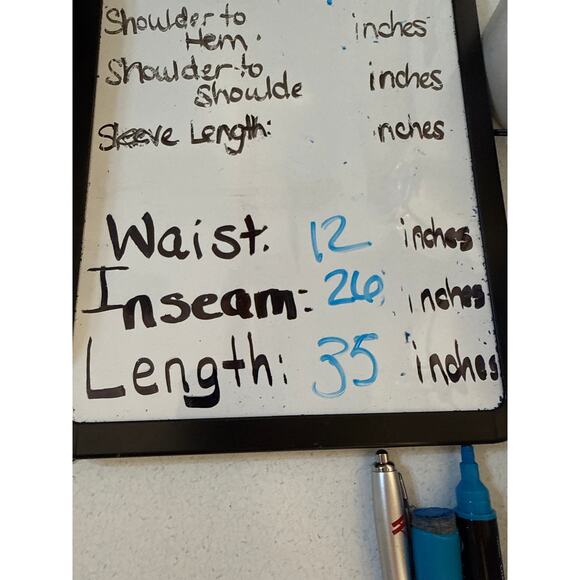 Shoulder to inches
Hem.
Shoulder to inches
Shoulde
Sleeve Length: nches
Waist: 12 inches
Inseam: 26 inches
Length: 35 inches